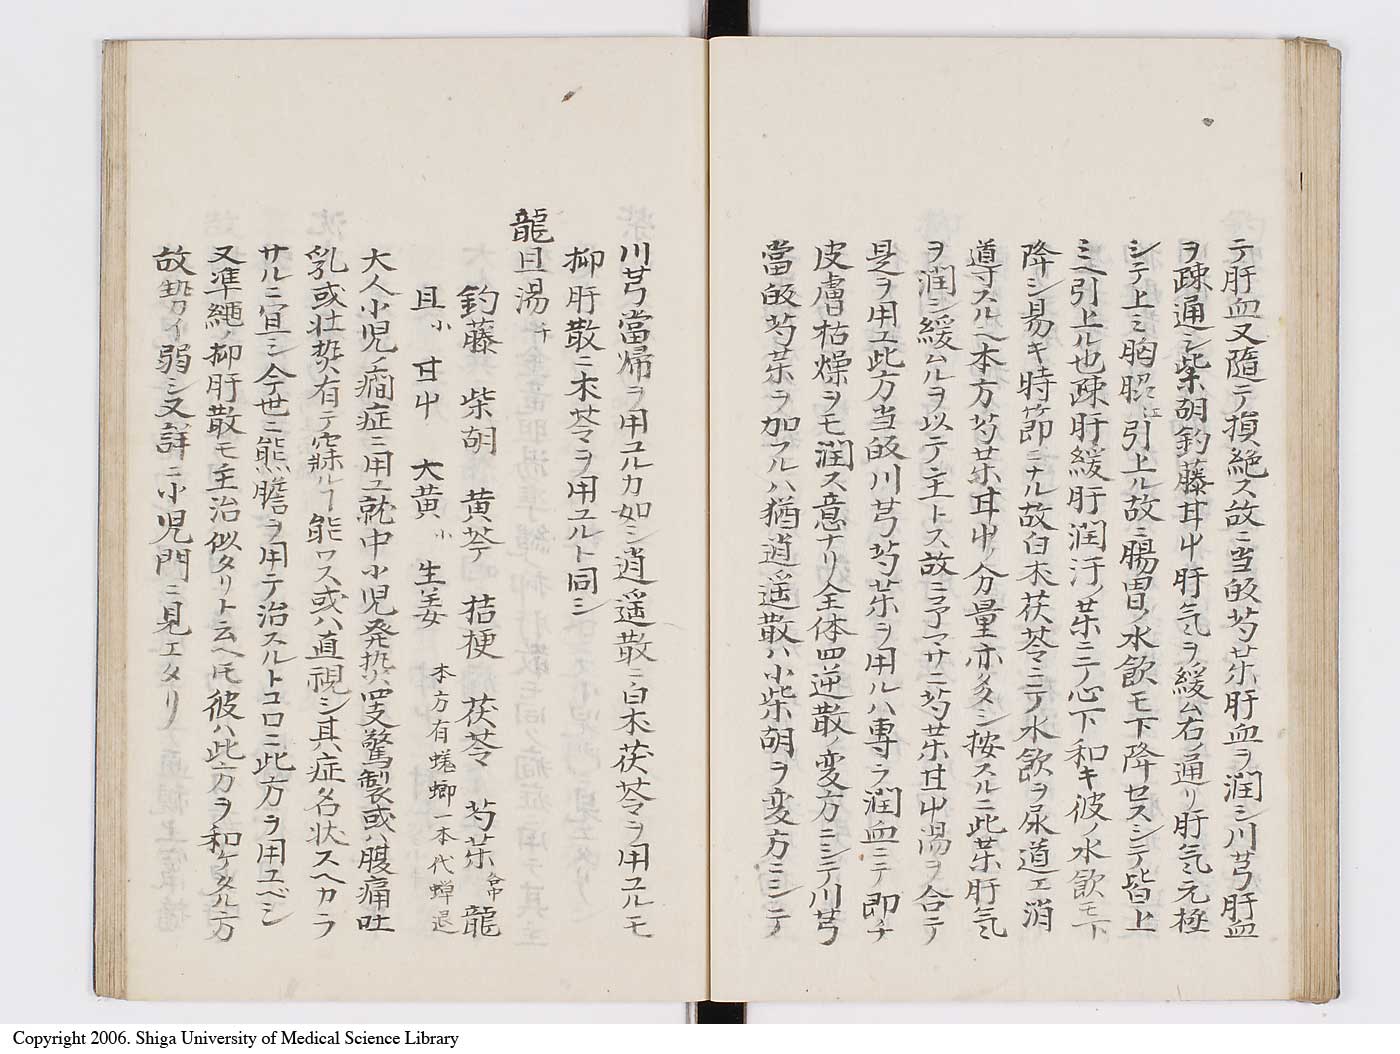 テ肝血又隨テ損絶ス故ニ当皈芍薬肝血ヲ潤シ川芎肝血
ヲ疎通シ柴胡釣藤甘屮肝気ヲ緩ム右ノ通リ肝気亢極
シテ上ミ胸膈江引上ル故ニ腸胃ノ水飲モ下降セスシテ皆上
ミヘ引上ル也疎肝緩肝潤汗薬ニテ心下和キ彼ノ水飲モ下
降シ易キ時節ニナル故白朮茯苓ニテ水飲ヲ尿道エ消
導スル也本方芍薬甘屮ノ分量亦多シ按スルニ此薬肝気
ヲ潤シ緩ムルヲ以テ主トス故ニ予マサニ芍薬甘屮湯ヲ合テ
是ヲ用ユ此方当皈川芎芍薬ヲ用ルハ専ラ潤血ニテ即チ
皮膚枯燥ヲモ潤ス意ナリ全体四逆散ノ変方ニシテ川芎
當皈芍薬ヲ加フルハ猶逍遥散ハ小柴胡ヲ変方ニシテ
川芎當帰ヲ用ユルカ如シ逍遥散ニ白朮茯苓ヲ用ユルモ
抑肝散ニ朮苓ヲ用ユルト同シ
龍旦湯千
釣藤 柴胡 黄芩 桔梗 茯苓 芍薬 各中 龍
旦小 甘屮 大黄小 生姜 本方有蜣蜋一本代蝉退
大人小児ノ癇症ニ用ユ就中小児発熱四支驚製或ハ腹痛吐
乳或壮熱有テ寐ルヿ能ワス或ハ直視シ其症名状スヘカラ
サルニ宜シ今世ニ熊膽ヲ用テ治スルトコロニ此方ヲ用ユベシ
又準縄ノ抑肝散モ主治似タリト云ヘ𪜈彼ハ此方ヲ和ケタル方
故勢イ弱シ又詳ニ小児門ニ見エタリ
Copyright 2006. Shiga University of Medical Science Library